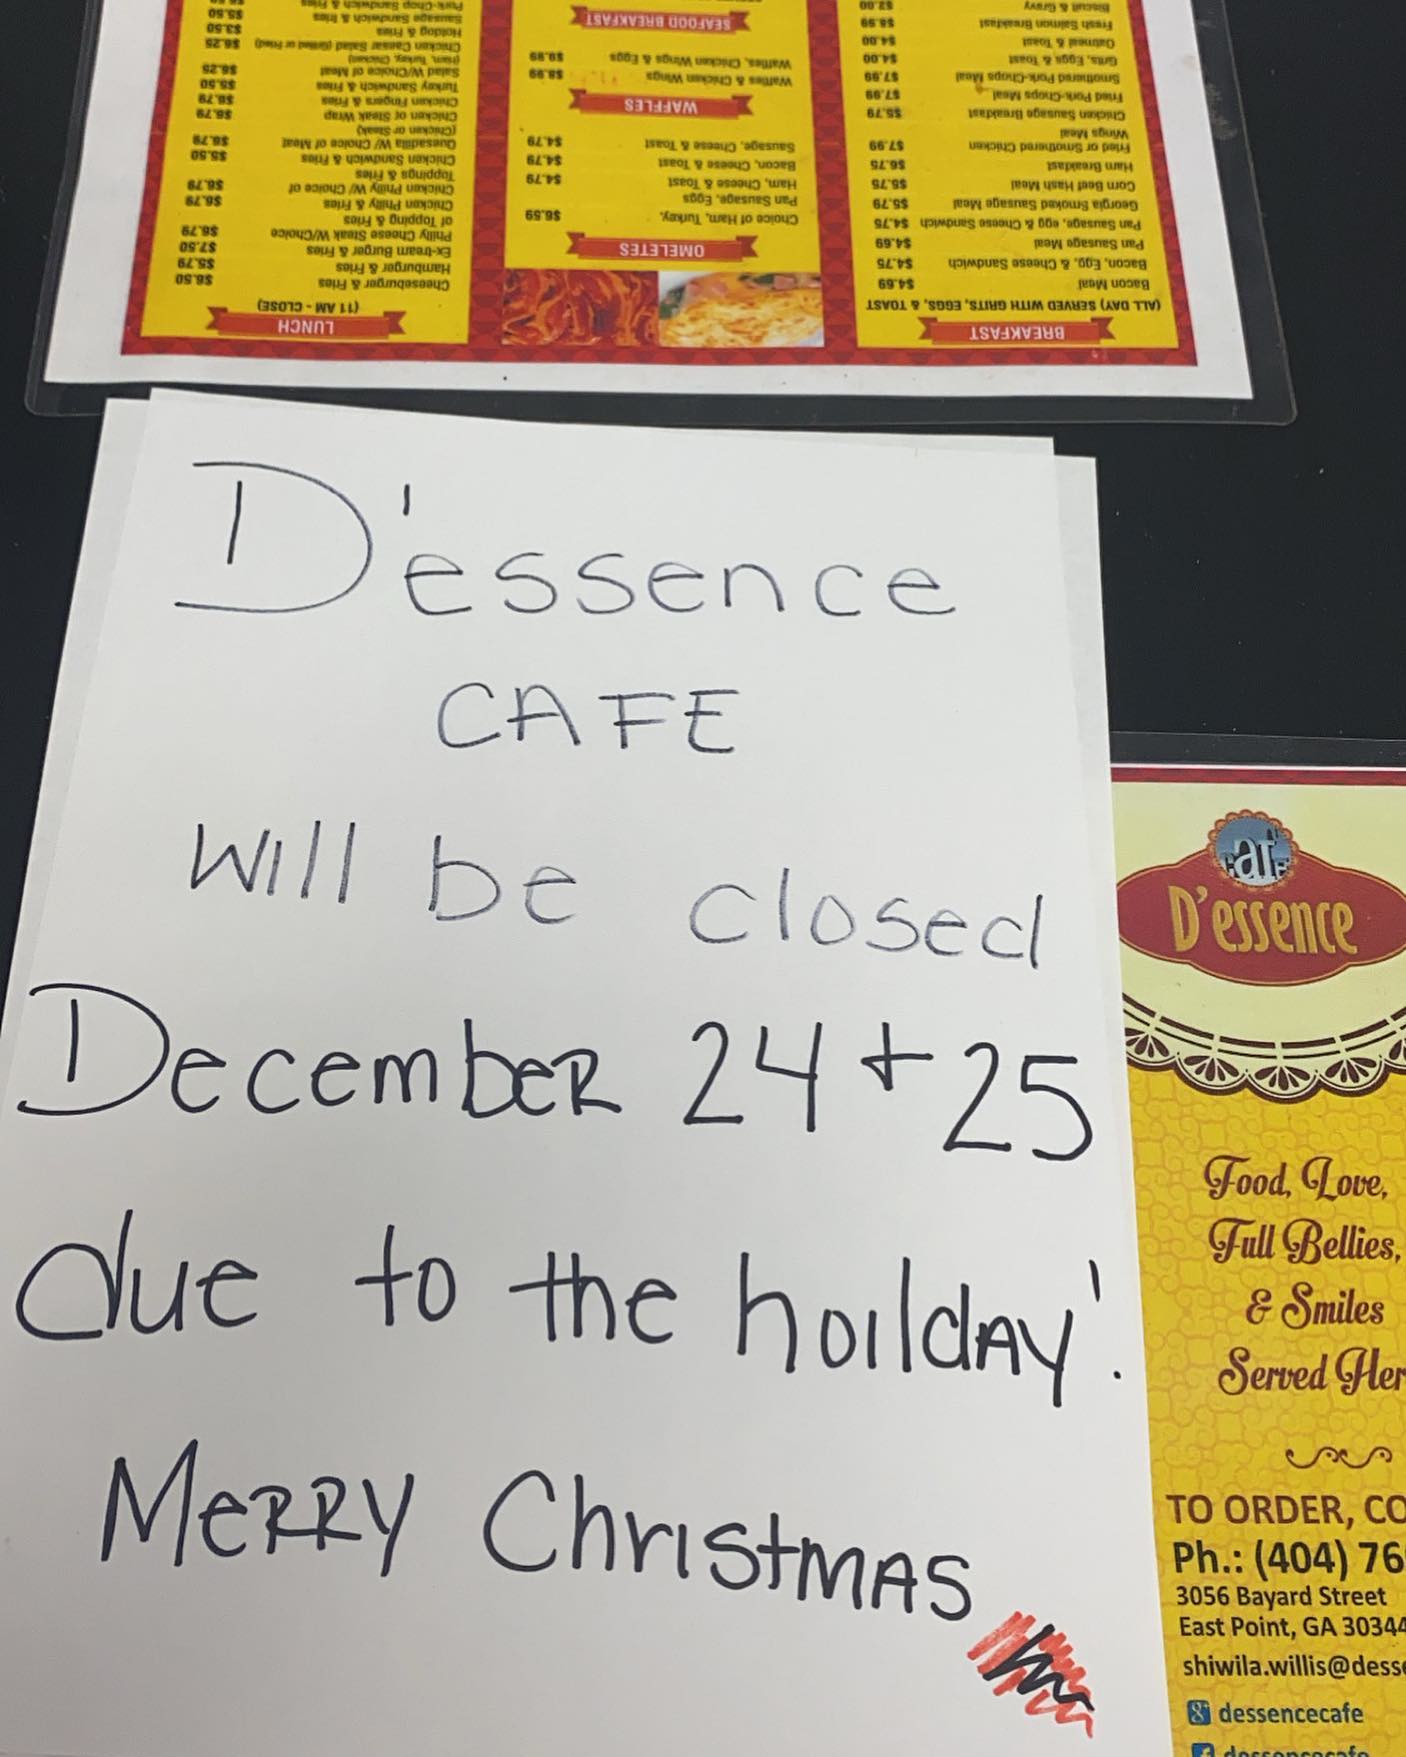 D'essence
CAFE
Will be closed
December 24 + 25
due to the hoilday!
Merry Christmas
BREAKFAST
(ALL DAY) SERVED WITH GRITS, EGGS, & TOAST
Bacon Meal $4.69
Bacon, Egg, & Cheese Sandwich $4.75
Pan Sausage Meal $4.69
Pan Sausage, egg & Cheese Sandwich $4.75
Georgia Smoked Sausage Meal $5.79
Corn Beef Hash Meal $5.75
Ham Breakfast $6.75
Fried or Smothered Chicken $7.99
Wings Meal
Chicken Sausage Breakfast $5.79
Fried Pork-Chops Meal $7.99
Smothered Pork-Chops Meal $7.99
Grits, Eggs & Toast $4.00
Oatmeal & Toast $4.00
Fresh Salmon Breakfast $8.99
Biscuit & Gravy $2.00
OMELETES
Choice of Ham, Turkey, $6.59
Pan Sausage, Eggs
Ham, Cheese & Toast $4.79
Bacon, Cheese & Toast $4.79
Sausage, Cheese & Toast $4.79
WAFFLES
Waffles & Chicken Wings $8.99
Waffles, Chicken Wings & Eggs $9.99
SEAFOOD BREAKFAST
LUNCH
(11 AM - CLOSE)
Cheeseburger & Fries $6.50
Hamburger & Fries $5.79
Ex-tream Burger & Fries $7.50
Philly Cheese Steak W/Choice $6.79
of Topping & Fries
Chicken Philly & Fries $6.79
Chicken Philly W/ Choice of $6.79
Toppings & Fries
Chicken Sandwich & Fries $5.50
Quesadilla W/ Choice of Meat $6.79
(Chicken or Steak)
Chicken or Steak Wrap $6.79
Chicken Fingers & Fries $6.79
Turkey Sandwich & Fries $5.50
Salad W/Choice of Meat $6.25
(Ham, Turkey, Chicken)
Chicken Caesar Salad (Grilled or Fried) $6.25
Hotdog & Fries $3.50
Sausage Sandwich & Fries $5.50
Pork-Chop Sandwich & Fries
CAFE
D'essence
Food, Love,
Full Bellies,
& Smiles
Served Her
TO ORDER, CO
Ph.: (404) 76
3056 Bayard Street
East Point, GA 30344
shiwila.willis@desse
dessencecafe
dessencecafe